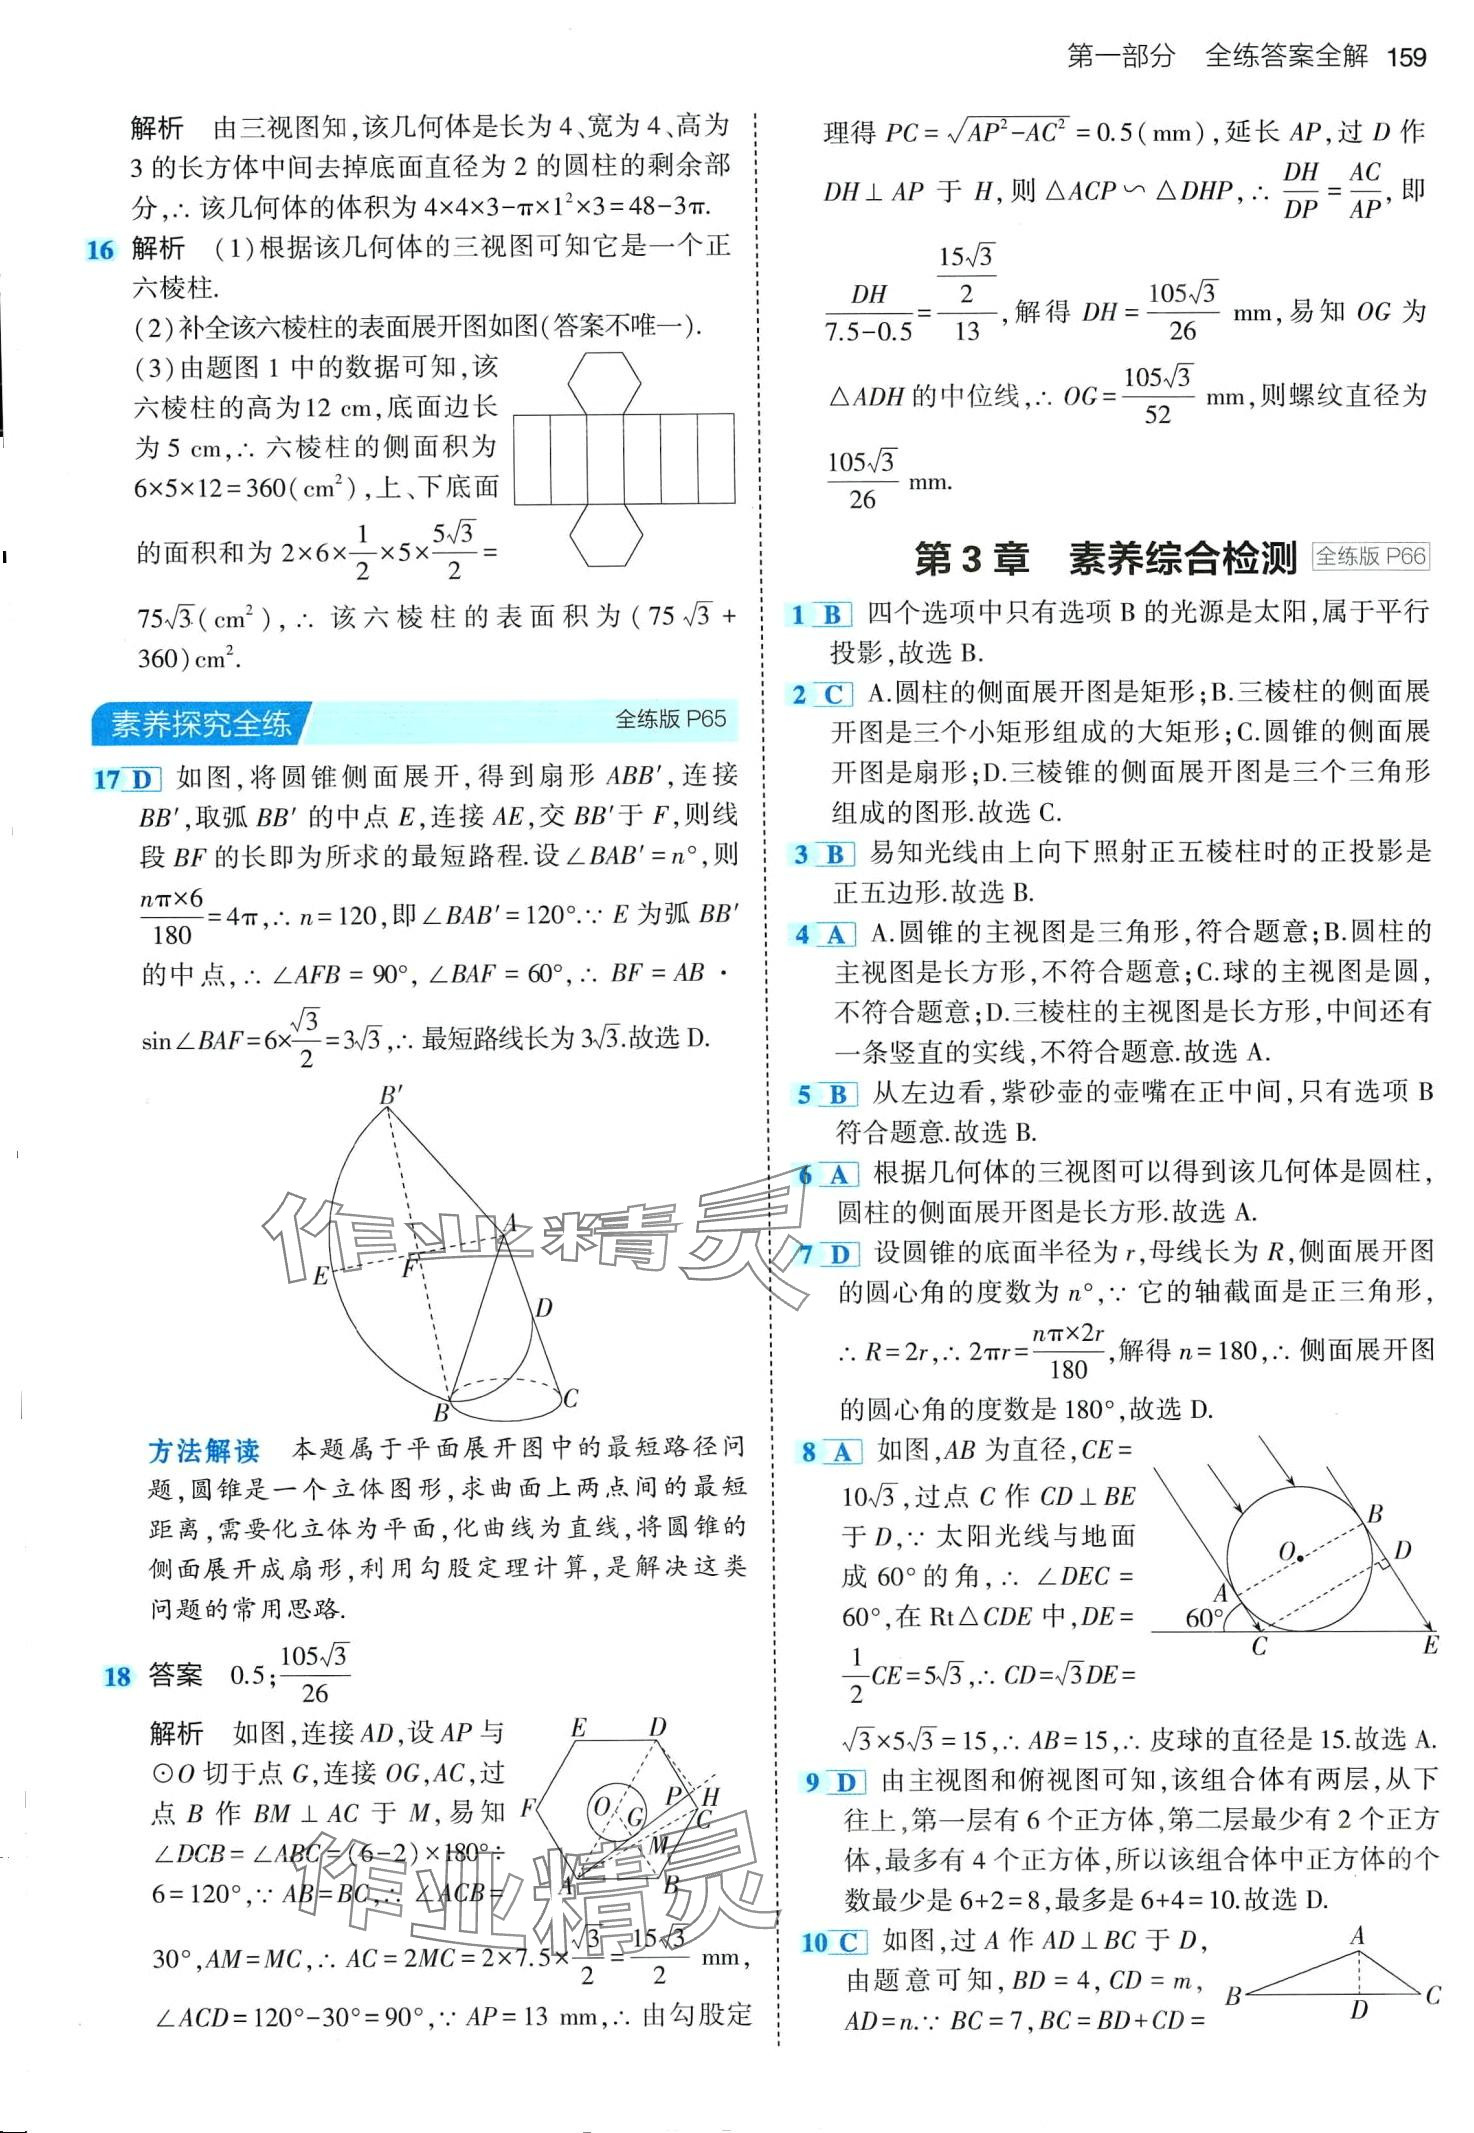 第一部分 全练答案全解 159
解析 由三视图知,该几何体是长为 4、宽为 4、高为
3 的长方体中间去掉底面直径为 2 的圆柱的剩余部
分,∴ 该几何体的体积为 4×4×3-π×1²×3=48-3π.
16 解析 (1)根据该几何体的三视图可知它是一个正
六棱柱.
(2)补全该六棱柱的表面展开图如图(答案不唯一).
(3)由题图 1 中的数据可知,该
六棱柱的高为12 cm,底面边长
为 5 cm,∴ 六棱柱的侧面积为
6×5×12=360(cm²),上、下底面
的面积和为 2×6×1/2×5×5√3/2=
75√3(cm²),∴ 该六棱柱的表面积为(75√3+
360)cm².
素养探究全练 全练版 P65
17 D 如图,将圆锥侧面展开,得到扇形 ABB′,连接
BB′,取弧 BB′ 的中点 E,连接 AE,交 BB′于 F,则线
段 BF 的长即为所求的最短路程.设∠BAB′=n°,则
nπ×6/180=4π,∴ n=120,即∠BAB′=120°.∵ E 为弧 BB′
的中点,∴ ∠AFB=90°,∠BAF=60°,∴ BF=AB·
sin∠BAF=6×√3/2=3√3,∴ 最短路线长为 3√3.故选 D.
B′
A
E
F
D
B
C
方法解读 本题属于平面展开图中的最短路径问
题,圆锥是一个立体图形,求曲面上两点间的最短
距离,需要化立体为平面,化曲线为直线,将圆锥的
侧面展开成扇形,利用勾股定理计算,是解决这类
问题的常用思路.
18 答案 0.5;105√3/26
解析 如图,连接 AD,设 AP 与
⊙O 切于点 G,连接 OG,AC,过
点 B 作 BM⊥AC 于 M,易知
∠DCB=∠ABC=(6-2)×180°÷
6=120°,∵ AB=BC,∴ ∠ACB=
30°,AM=MC,∴ AC=2MC=2×7.5×√3/2=15√3/2 mm,
∠ACD=120°-30°=90°,∵ AP=13 mm,∴ 由勾股定
E D
P H
F O G C
M
A B
作业精灵
作业精灵
理得 PC=√(AP²-AC²)=0.5(mm),延长 AP,过 D 作
DH⊥AP 于 H,则△ACP∽△DHP,∴ DH/DP=AC/AP,即
DH/(7.5-0.5)=(15√3/2)/13,解得 DH=105√3/26 mm,易知 OG 为
△ADH 的中位线,∴ OG=105√3/52 mm,则螺纹直径为
105√3/26 mm.
第 3 章 素养综合检测 全练版 P66
1 B 四个选项中只有选项 B 的光源是太阳,属于平行
投影,故选 B.
2 C A.圆柱的侧面展开图是矩形;B.三棱柱的侧面展
开图是三个小矩形组成的大矩形;C.圆锥的侧面展
开图是扇形;D.三棱锥的侧面展开图是三个三角形
组成的图形.故选 C.
3 B 易知光线由上向下照射正五棱柱时的正投影是
正五边形.故选 B.
4 A A.圆锥的主视图是三角形,符合题意;B.圆柱的
主视图是长方形,不符合题意;C.球的主视图是圆,
不符合题意;D.三棱柱的主视图是长方形,中间还有
一条竖直的实线,不符合题意.故选 A.
5 B 从左边看,紫砂壶的壶嘴在正中间,只有选项 B
符合题意.故选 B.
6 A 根据几何体的三视图可以得到该几何体是圆柱,
圆柱的侧面展开图是长方形.故选 A.
7 D 设圆锥的底面半径为 r,母线长为 R,侧面展开图
的圆心角的度数为 n°,∵ 它的轴截面是正三角形,
∴ R=2r,∴ 2πr=nπ×2r/180,解得 n=180,∴ 侧面展开图
的圆心角的度数是 180°,故选 D.
8 A 如图,AB 为直径,CE=
10√3,过点 C 作 CD⊥BE
于 D,∵ 太阳光线与地面
成 60°的角,∴ ∠DEC=
60°,在 Rt△CDE 中,DE=
1/2CE=5√3,∴ CD=√3DE=
√3×5√3=15,∴ AB=15,∴ 皮球的直径是 15.故选 A.
B
O
D
A
60°
C E
9 D 由主视图和俯视图可知,该组合体有两层,从下
往上,第一层有 6 个正方体,第二层最少有 2 个正方
体,最多有 4 个正方体,所以该组合体中正方体的个
数最少是 6+2=8,最多是 6+4=10.故选 D.
10 C 如图,过 A 作 AD⊥BC 于 D,
由题意可知,BD=4,CD=m,
AD=n.∵ BC=7,BC=BD+CD=
A
B D C